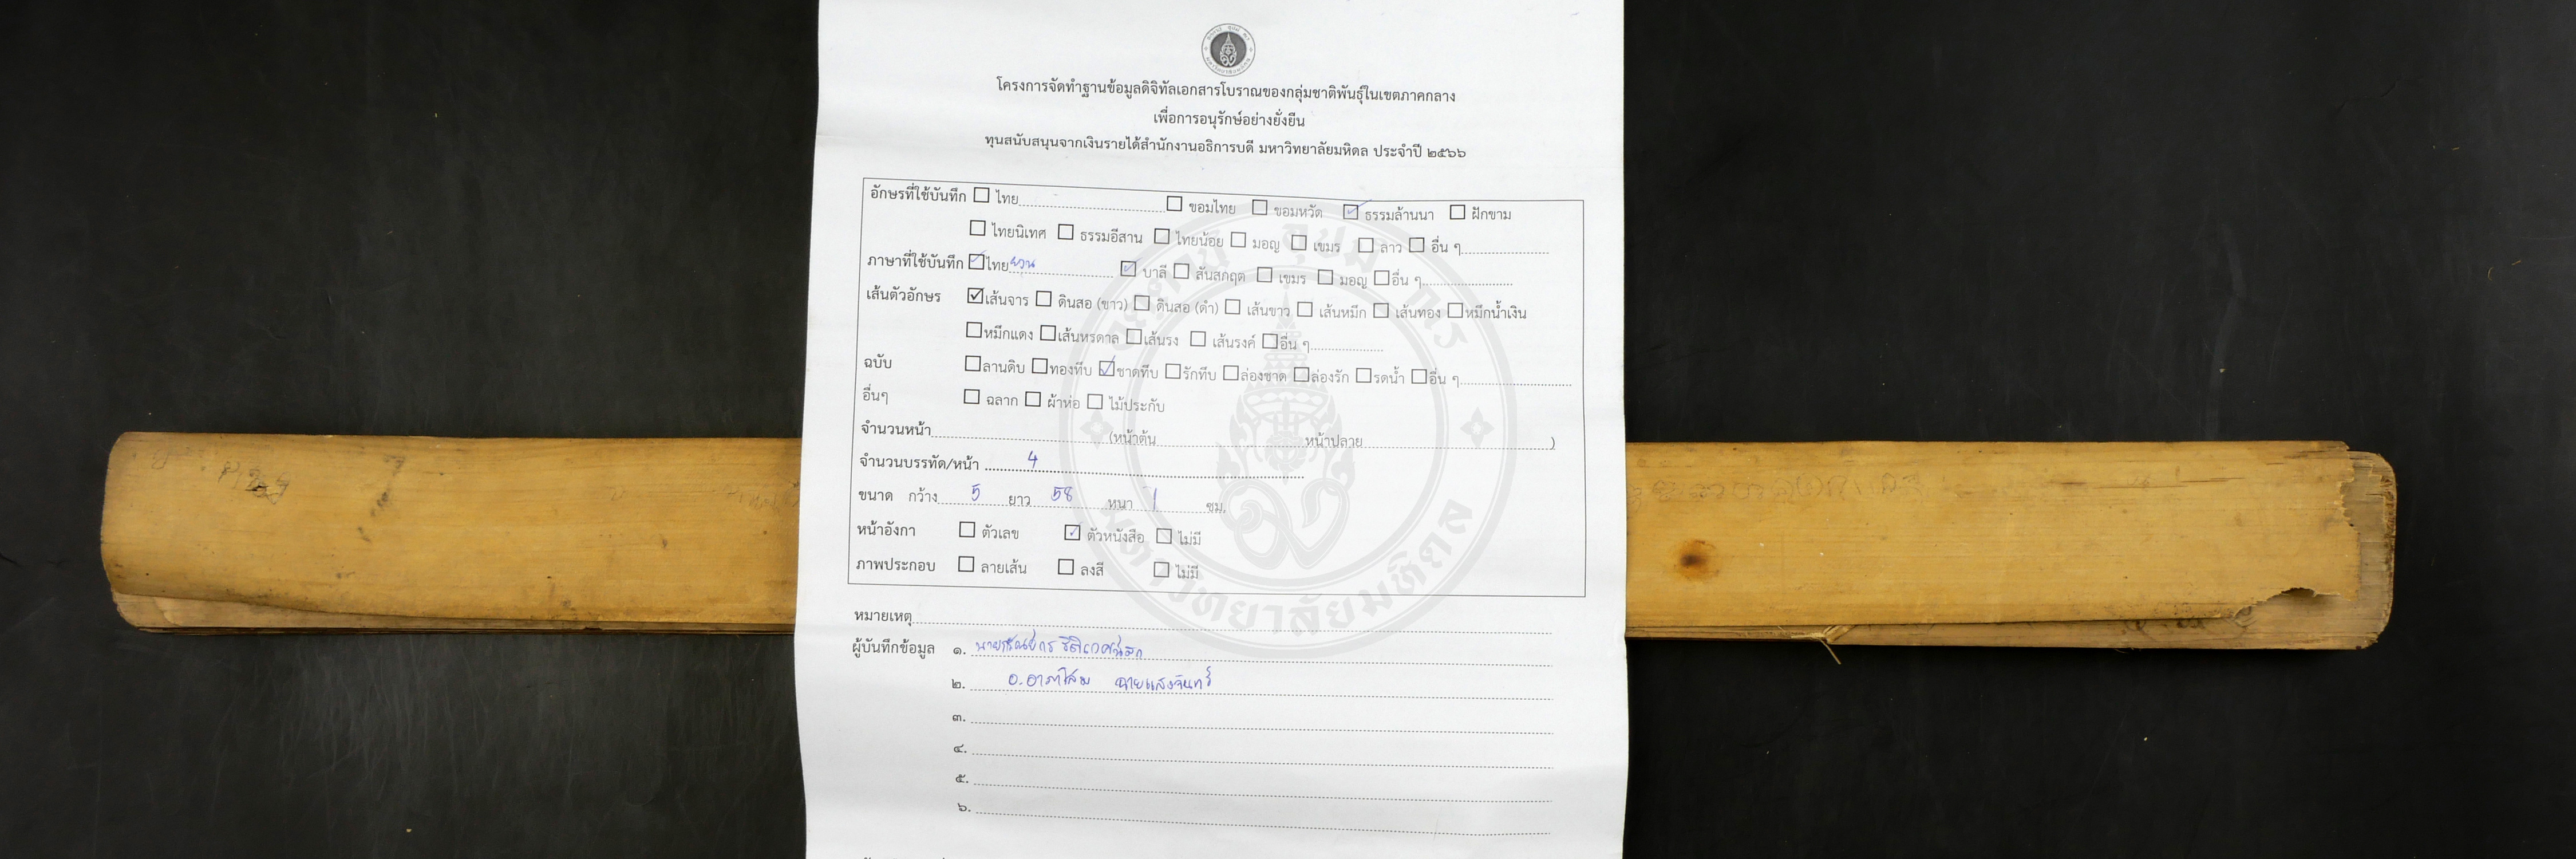 โครงการจัดทำฐานข้อมูลดิจิทัลเอกสารโบราณของกลุ่มชาติพันธุ์ในเขตภาคกลาง
เพื่อการอนุรักษ์อย่างยั่งยืน
ทุนสนับสนุนจากเงินรายได้สำนักงานอธิการบดี มหาวิทยาลัยมหิดล ประจำปี ๒๕๖๖
อักษรที่ใช้บันทึก ☐ ไทย ☐ ขอมไทย ☐ ขอมหวัด ☑ ธรรมล้านนา ☐ ฝักขาม
☐ ไทยนิเทศ ☐ ธรรมอีสาน ☐ ไทยน้อย ☐ มอญ ☐ เขมร ☐ ลาว ☐ อื่น ๆ
ภาษาที่ใช้บันทึก ☑ ไทย ยวน ☑ บาลี ☐ สันสกฤต ☐ เขมร ☐ มอญ ☐ อื่น ๆ
เส้นตัวอักษร ☑ เส้นจาร ☐ ดินสอ (ขาว) ☐ ดินสอ (ดำ) ☐ เส้นขาว ☐ เส้นหมึก ☐ เส้นทอง ☐ หมึกน้ำเงิน
☐ หมึกแดง ☐ เส้นหรดาล ☐ เส้นรง ☐ เส้นรงค์ ☐ อื่น ๆ
ฉบับ ☐ ลานดิบ ☐ ทองทึบ ☑ ชาดทึบ ☐ รักทึบ ☐ ล่องชาด ☐ ล่องรัก ☐ รดน้ำ ☐ อื่น ๆ
อื่นๆ ☐ ฉลาก ☐ ผ้าห่อ ☐ ไม้ประกับ
จำนวนหน้า (หน้าต้น หน้าปลาย )
จำนวนบรรทัด/หน้า 4
ขนาด กว้าง 5 ยาว 58 หนา 1 ซม.
หน้าอังกา ☐ ตัวเลข ☑ ตัวหนังสือ ☐ ไม่มี
ภาพประกอบ ☐ ลายเส้น ☐ ลงสี ☐ ไม่มี
หมายเหตุ
ผู้บันทึกข้อมูล ๑. นาย
๒. อ.อาภาโสม ฉายแสงจันทร์
๓.
๔.
๕.
๖.